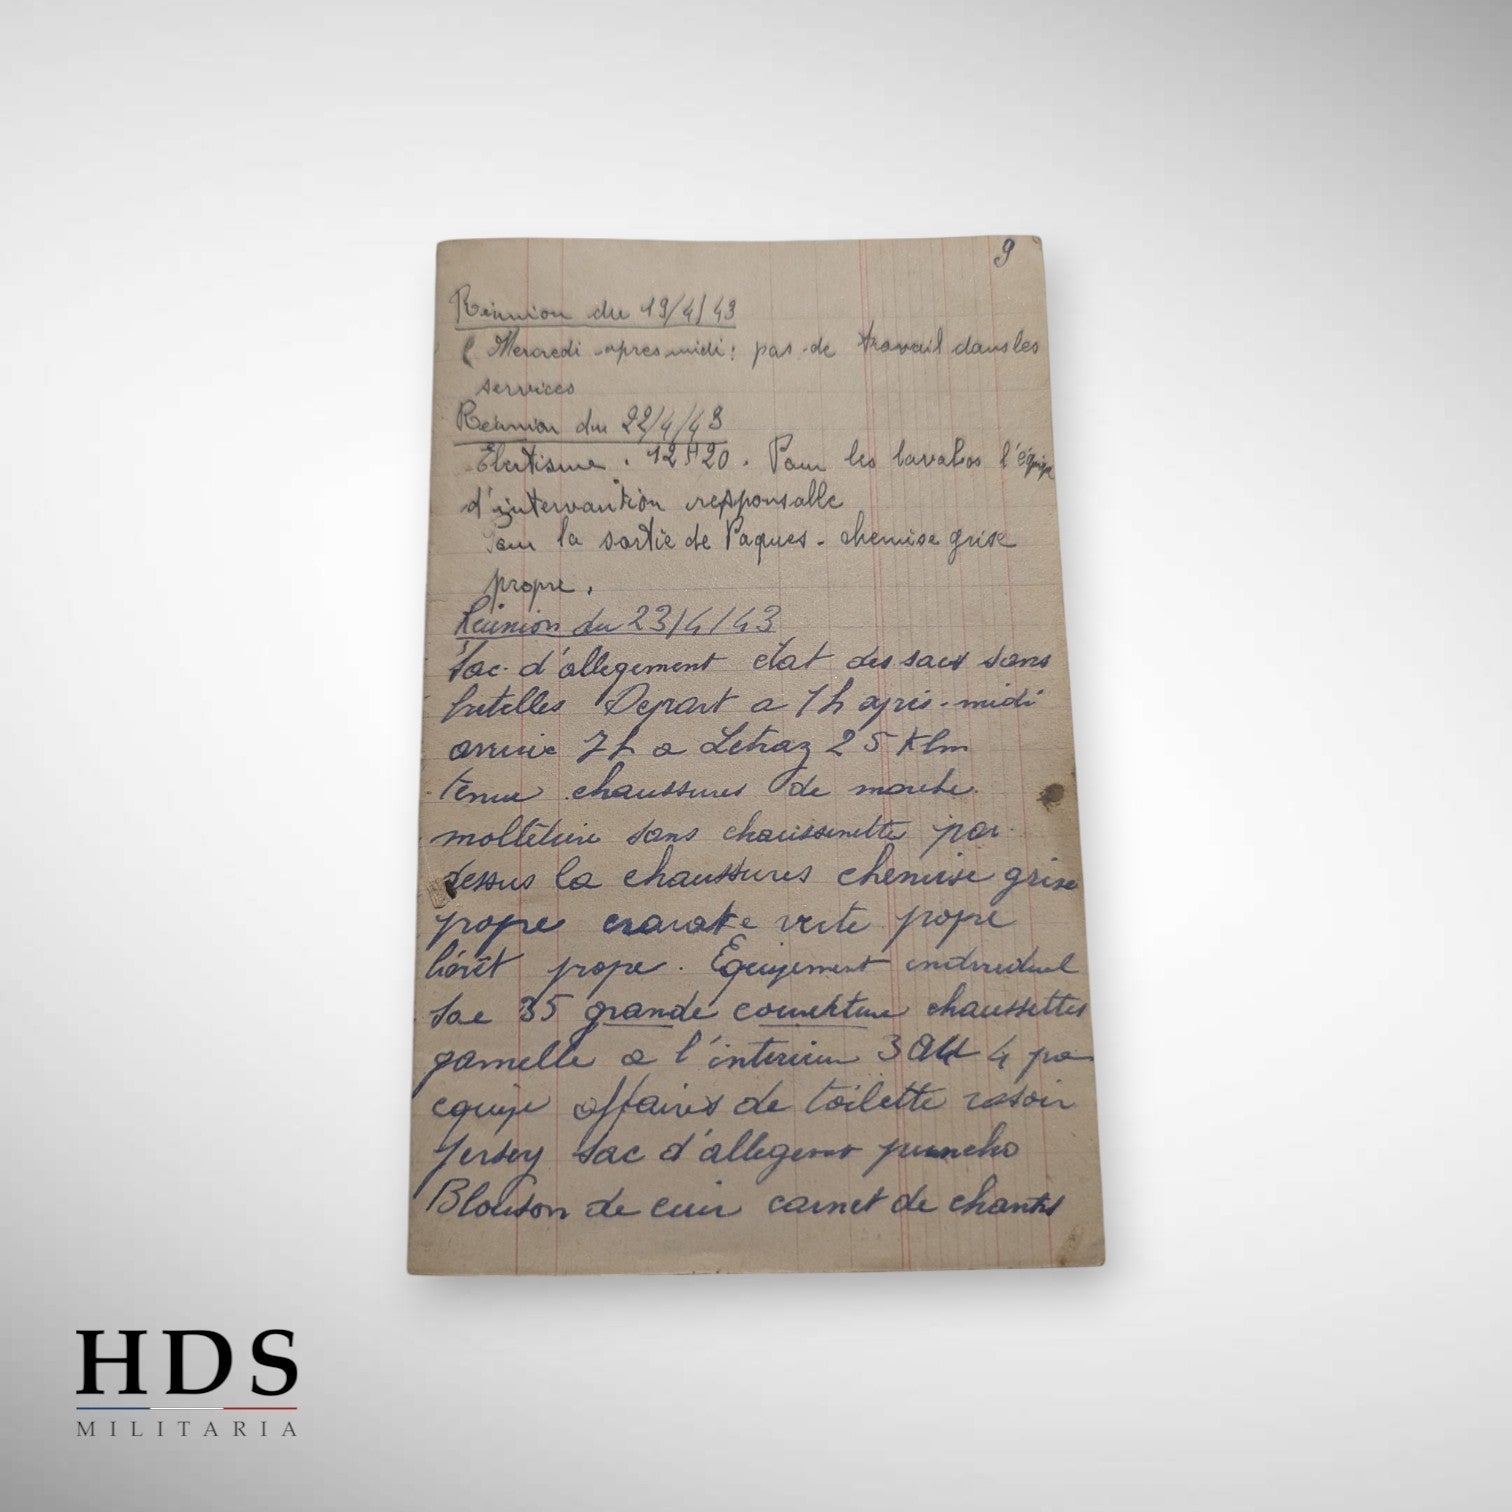 9
Réunion du 19/4/43
Mercredi après midi : pas de travail dans les
services
Réunion du 22/4/43
Ebertisme . 12H20 . Pour les lavabos l'équipe
d'intervantion responsable
Pour la sortie de Paques - chemise grise
propre .
Réunion du 23/4/43
Sac d'allegement etat des sacs sans
bretelles Depart a 1h après-midi
arrivie 7h a Letraz 25 Klm
tenue chaussures de marche
molletiere sans chaussenette par
dessus la chaussures chemise grise
propre cravate verte propre
béret propre . Equipement individuel
Sac 35 grande couverture chaussettes
gamelle a l'interieur 3 4 par
equipe affaires de toilette rasoir
Jersey sac d'allegemt puncho
Blouson de cuir carnet de chants
HDS
MILITARIA